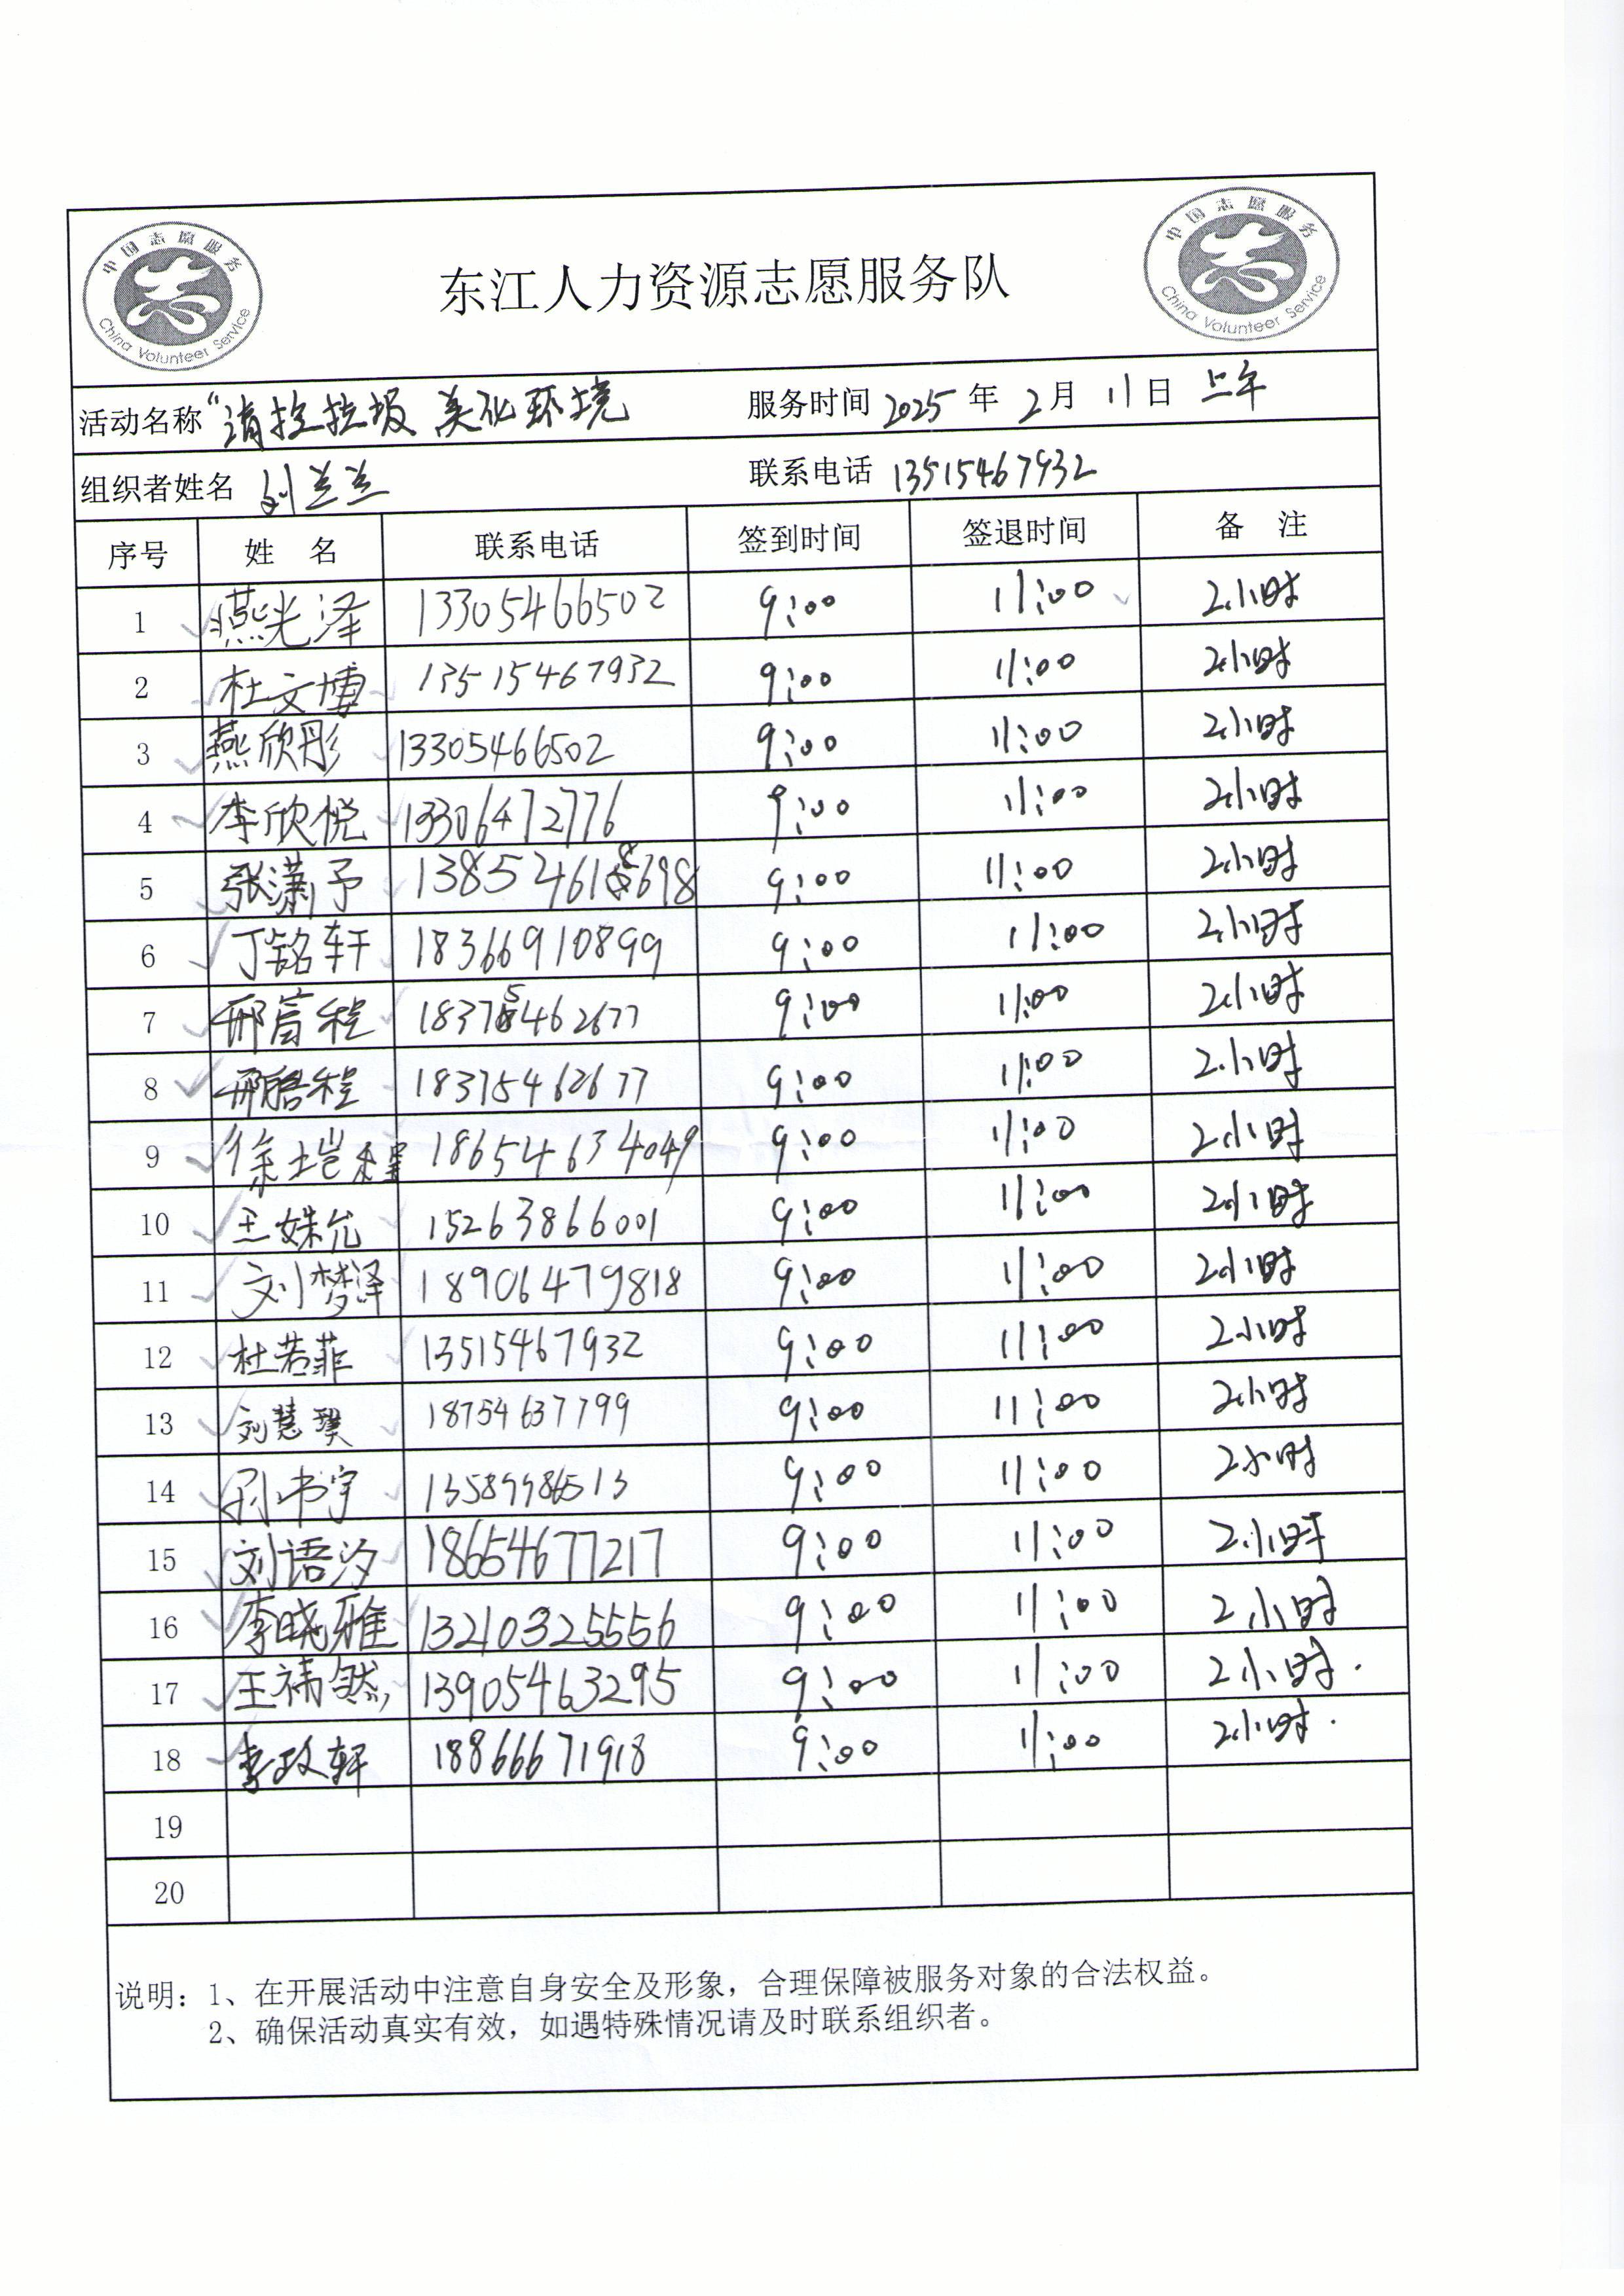 中国志愿服务
China Volunteer Service
东江人力资源志愿服务队
中国志愿服务
China Volunteer Service
活动名称 "清捡垃圾 美化环境 服务时间 2025 年 2 月 11 日 上午
组织者姓名 刘兰兰 联系电话 13515467932
序号 姓 名 联系电话 签到时间 签退时间 备 注
1 燕光泽 13305466502 9:00 11:00 2小时
2 杜文博 13515467932 9:00 11:00 2小时
3 燕欣彤 13305466502 9:00 11:00 2小时
4 李欣悦 13306472776 9:00 11:00 2小时
5 张潇予 138524618698 9:00 11:00 2小时
6 丁铭轩 18366910899 9:00 11:00 2小时
7 邢富程 18375462677 9:00 11:00 2小时
8 程 18375462677 9:00 11:00 2小时
9 徐垲程 18654634049 9:00 11:00 2小时
10 王姝允 15263866001 9:00 11:00 2小时
11 刘梦泽 18906479818 9:00 11:00 2小时
12 杜若菲 13515467932 9:00 11:00 2小时
13 刘慧璞 18754637799 9:00 11:00 2小时
14 孙书宇 9:00 11:00 2小时
15 刘语汐 18654677217 9:00 11:00 2小时
16 李晓雅 13210325556 9:00 11:00 2小时
17 王祎然 13905463295 9:00 11:00 2小时.
18 李政轩 18866671918 9:00 11:00 2小时.
19
20
说明：1、在开展活动中注意自身安全及形象，合理保障被服务对象的合法权益。
2、确保活动真实有效，如遇特殊情况请及时联系组织者。